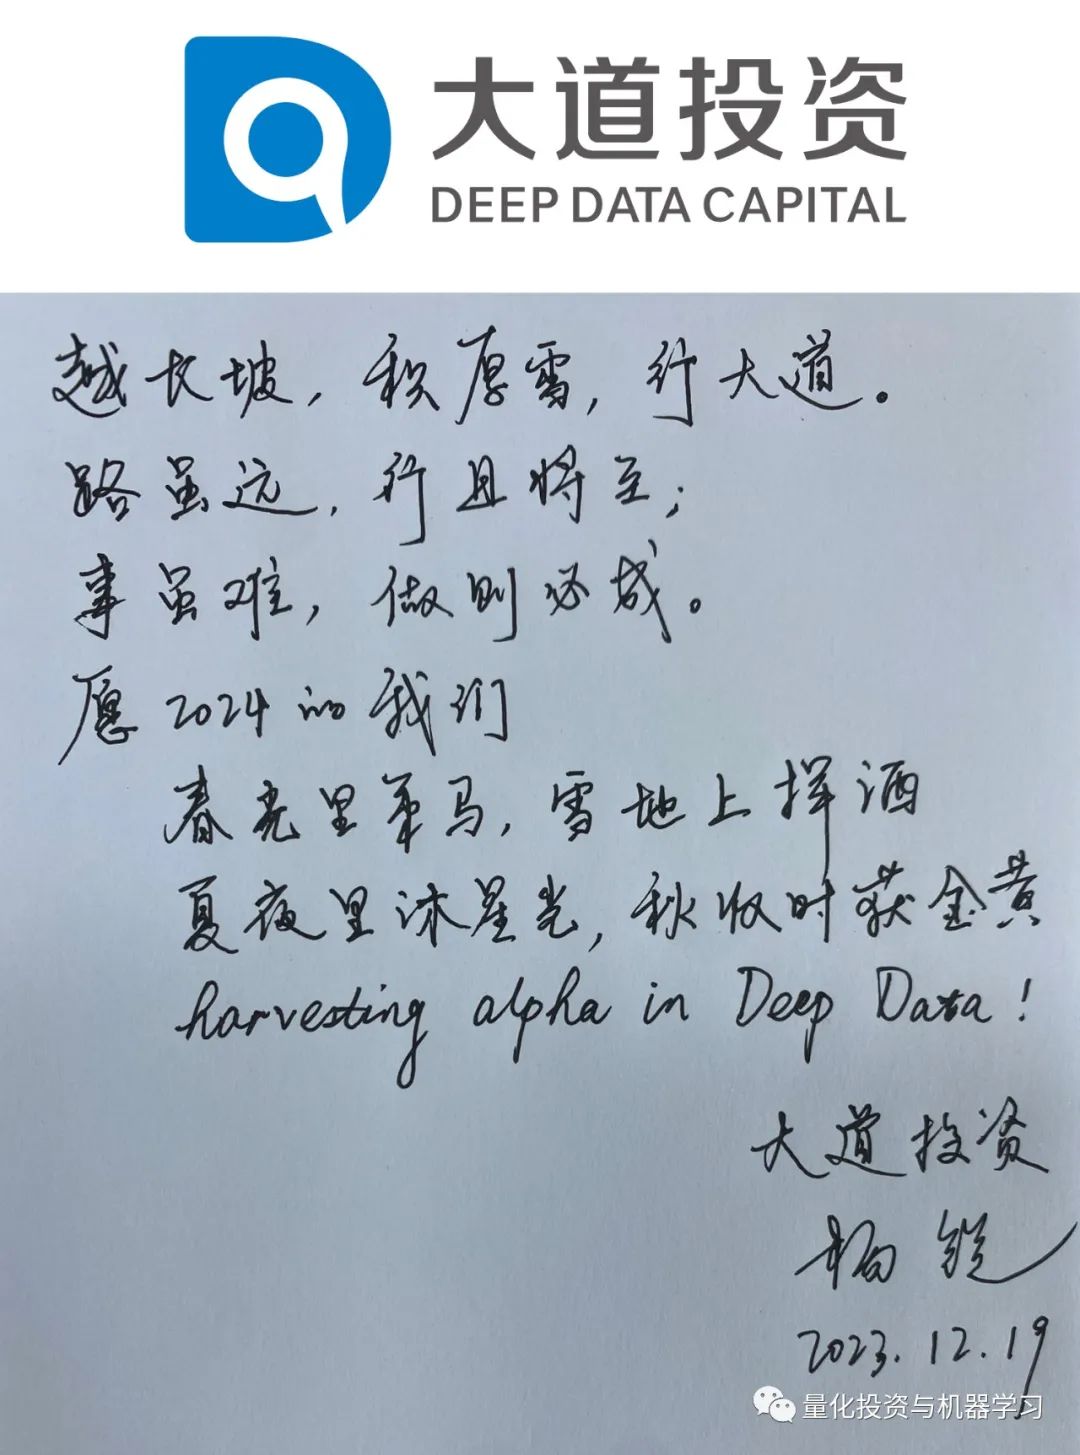 大道投资
DEEP DATA CAPITAL
越长坡，积厚雪，行大道。
路虽远，行且将至；
事虽难，做则必成。
愿2024的我们
春光里策马，雪地上挥洒
夏夜里沐星光，秋收时获金黄
harvesting alpha in Deep Data!
大道投资
杨锐
2023.12.19
量化投资与机器学习